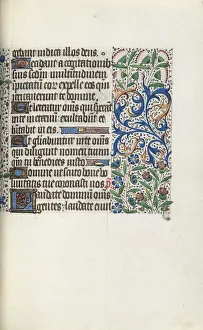 rebunt iudica illos deus.
Decidant a cogitationib
suis scdm multitudinem
ipietatu eor expelle eos qm
irritauerunt te domine.
Et letentur oms qui sperat
in te ineternu exultabut et
habitabis in eis
Et gliabuntur in te oms
qui diligunt nomen tuum
qm tu benedices iusto
Domine ut scuto bone vo
luntatis tue coronasti nos
Laudate dominu oms
gentes laudate eum